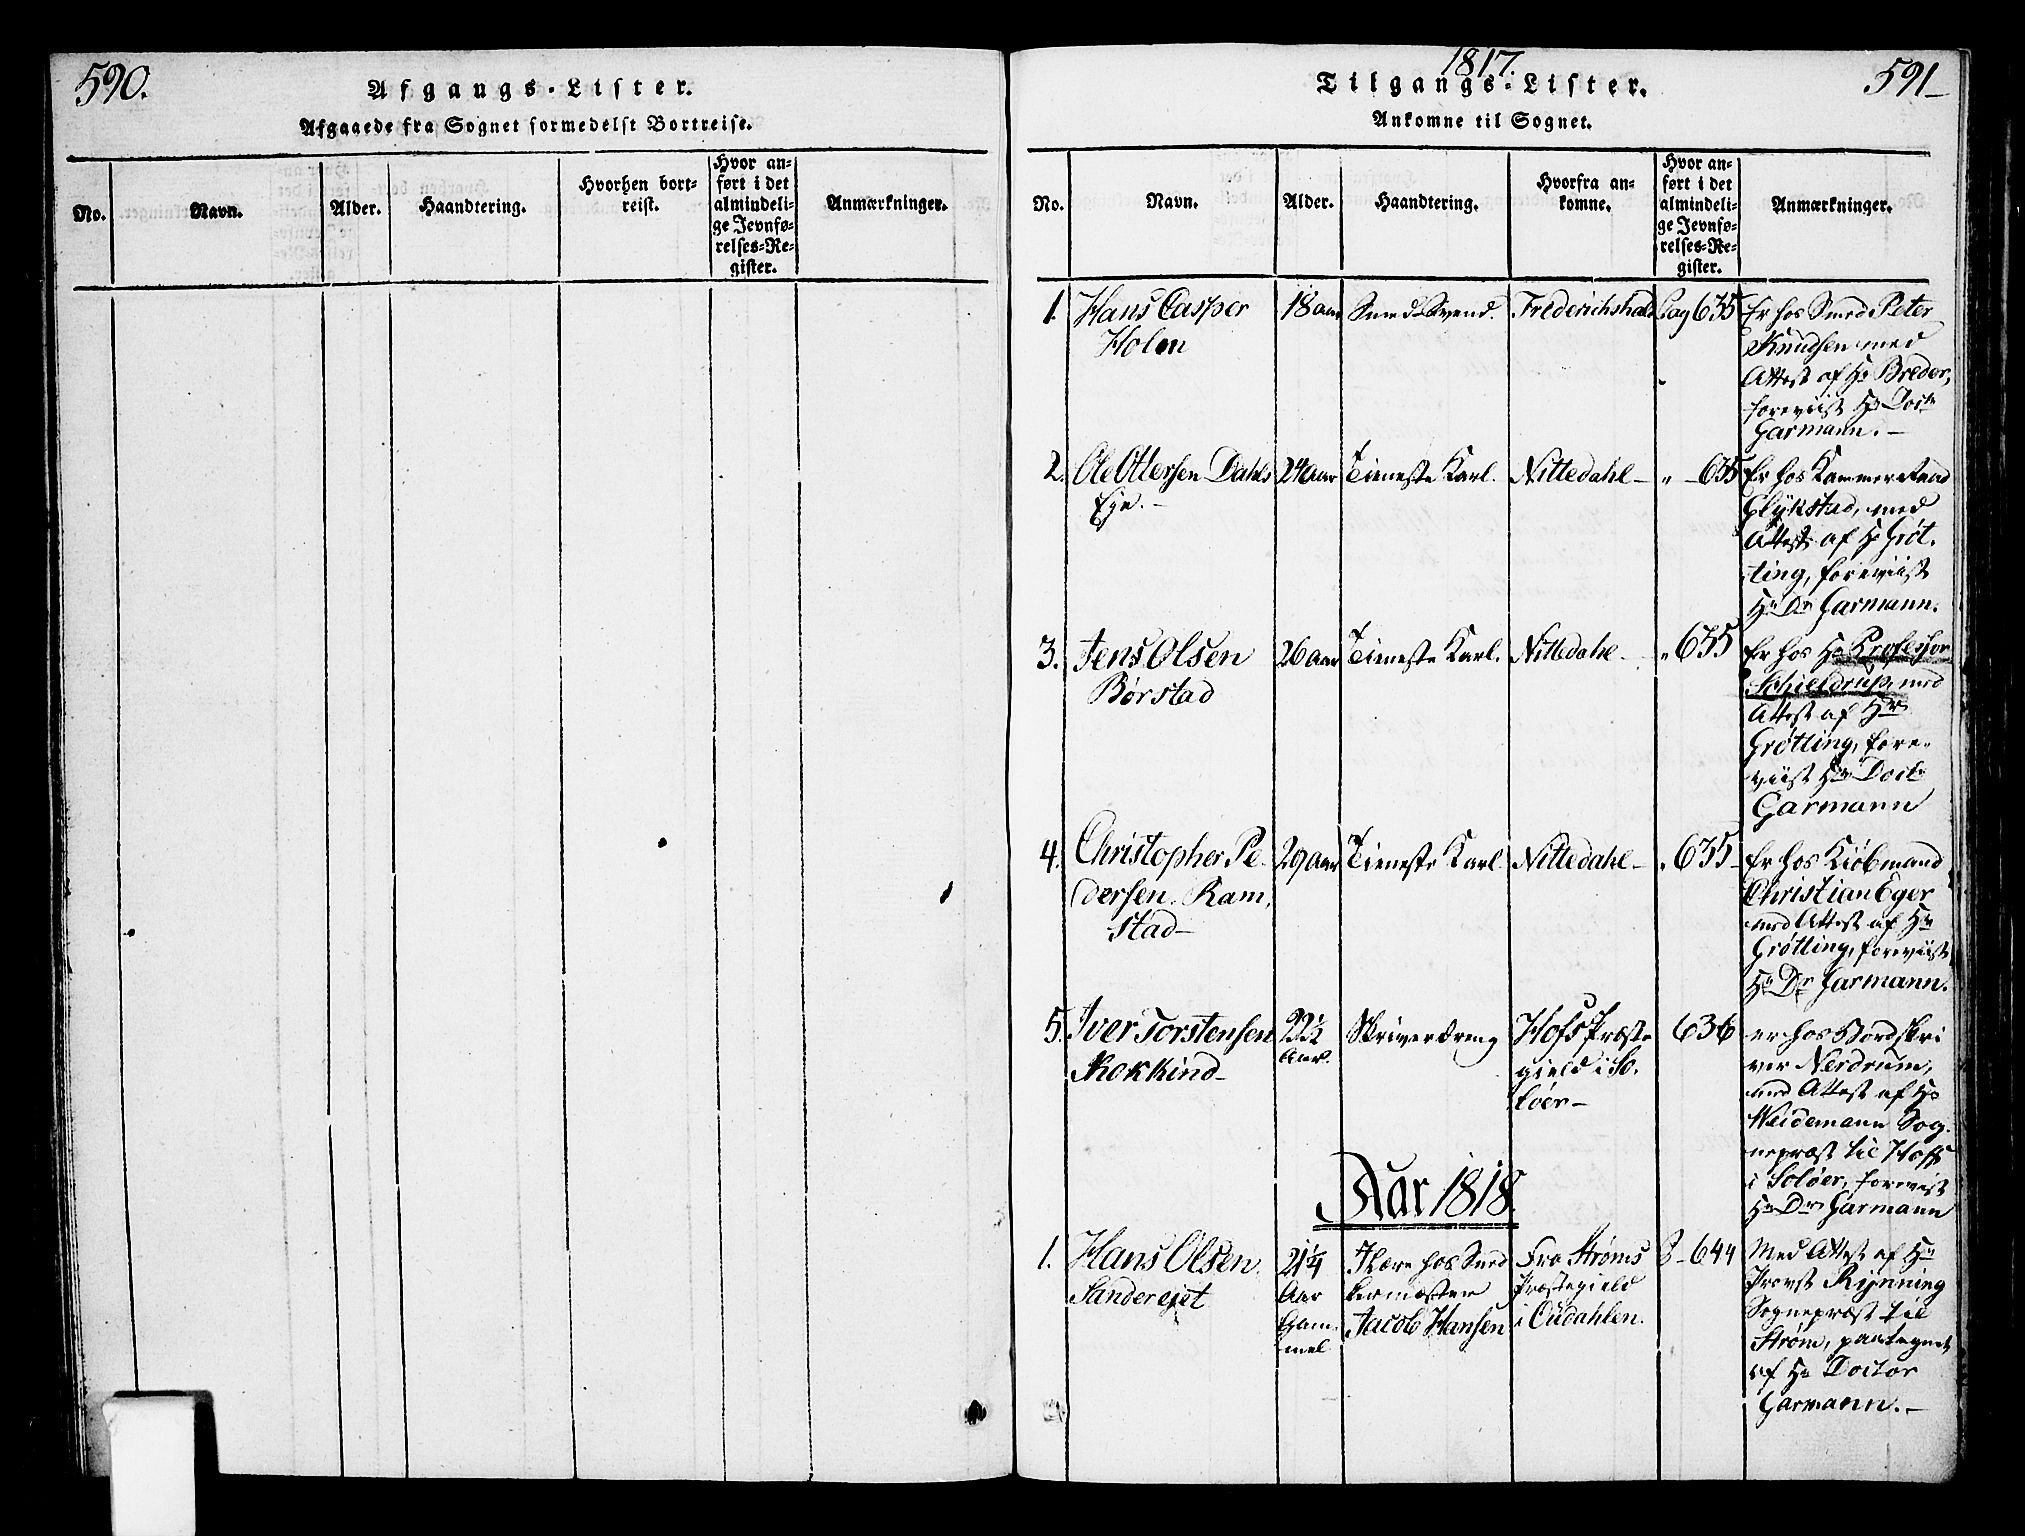 590.
Afgangs-Lister.
Afgaaede fra Sognet formedelst Bortreise.
No.
Navn.
Alder.
Haandtering.
Hvorhen bort-
reist.
Hvor an-
ført i det
almindeli-
ge Jevnfø-
relses-Re-
gister.
Anmærkninger.
1817.
591
Tilgangs-Lister.
Ankomne til Sognet.
No.
Navn.
Alder.
Haandtering.
Hvorfra an-
komne.
Hvor an-
ført i det
almindeli-
ge Jevnfø-
relses-Re-
gister.
Anmærkninger.
1. Hans Casper
Holm
18 aar
Smed Svend.
Frederichshald
Pag 635
Er hos Smed Peter
Knudsen med
Attest af Hr Breder,
foreviist Hr Doctr
Garmann.-
2. Ole Ottersen Dahls
Eje.-
24 aar
Tieneste Karl.
Nittedahl-
" - 635
Er hos Kammerraad
Glÿkstad, med
Attest af Hr Grøt.
ting, foreviist
Hr Dr Garmann.
3. Jens Olsen
Børstad
26 aar
Tieneste Karl.
Nittedahl-
" 635
Er hos Hr Professor
Schieldrup, med
Attest af Hr
Grøtting, fore-
viist Hr Doctr
Garmann
4. Christopher Pe-
dersen. Ram-
stad-
29 aar
Tieneste Karl.
Nittedahl-
" 635-
Er hos Kiöbmand
Christian Eger
med Attest af Hr
Grøtting, foreviist
Hr Dr Garmann.
5. Iver Torstensen
Rokkind-
22½
Aar.
Skriverdreng
Hofs Præste
gield i So-
løer-
636
er hos Sordskri
ver Nerdrum,
med Attest af Hr
Weidemann Sog-
nepræst til Hoff
i Soløer, forevist
Hr Dr Garmann
Aar 1818.
1. Hans Olsen
Sandereiet
21¼
Aar
Gam-
mel
I Lære hos Sned
kermester
Jacob Hansen
Fra Strøms
Præstegield
i Oudahlen.
P-644
Med Attest af Hr
Provst Rÿnning
Sognepræst til
Strøm, paategnet
af Hr Doctor
Garmann.-